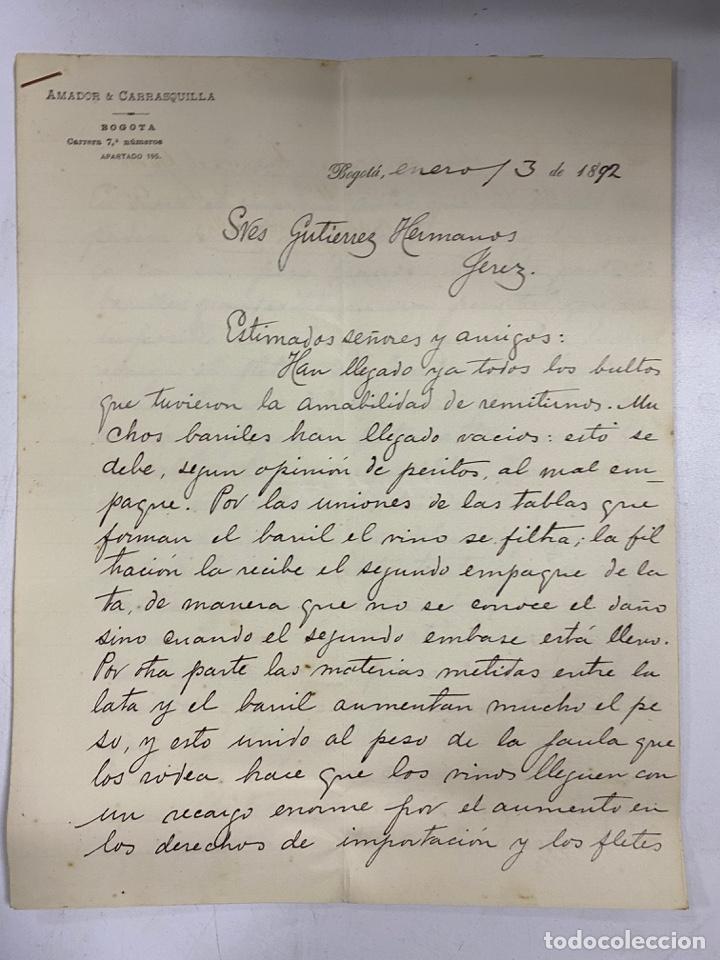 AMADOR & CARRASQUILLA
BOGOTA
Carrera 7,ª números
APARTADO 195.
Bogotá, enero 13 de 1892
Sres Gutierrez Hermanos
Jerez.
Estimados señores y amigos:
Han llegado ya todos los bultos
que tuvieron la amabilidad de remitirnos. Mu
chos barriles han llegado vacios: esto se
debe, segun opinión de peritos, al mal em-
paque. Por las uniones de las tablas que
forman el barril el vino se filtra; la fil
tración la recibe el segundo empaque de la
ta, de manera que no se conoce el daño
sino cuando el segundo embase está lleno.
Por otra parte las materias metidas entre la
lata y el barril aumentan mucho el pe
so, y esto unido al peso de la jaula que
los rodea hace que los vinos lleguen con
un recargo enorme por el aumento en
los derechos de importación y los fletes
todocoleccion
todocoleccion.net